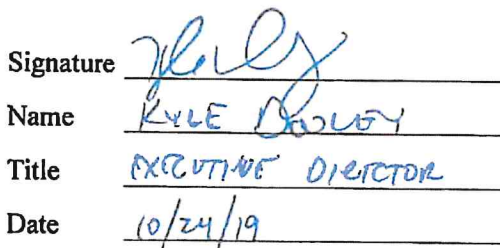 Signature
Name KYLE DOOLEY
Title EXECUTIVE DIRECTOR
Date 10/24/19